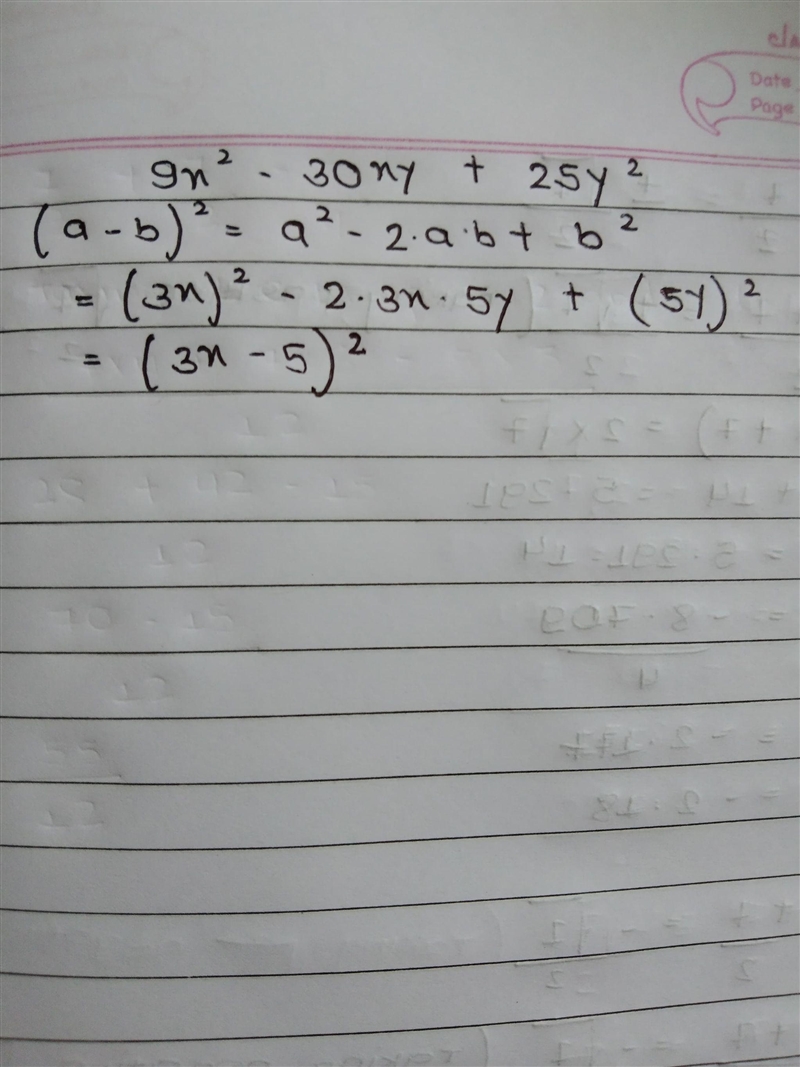 Date
Page
9x² - 30xy + 25y²
(a - b)² = a² - 2·a·b + b²
= (3x)² - 2·3x·5y + (5y)²
= (3x - 5)²